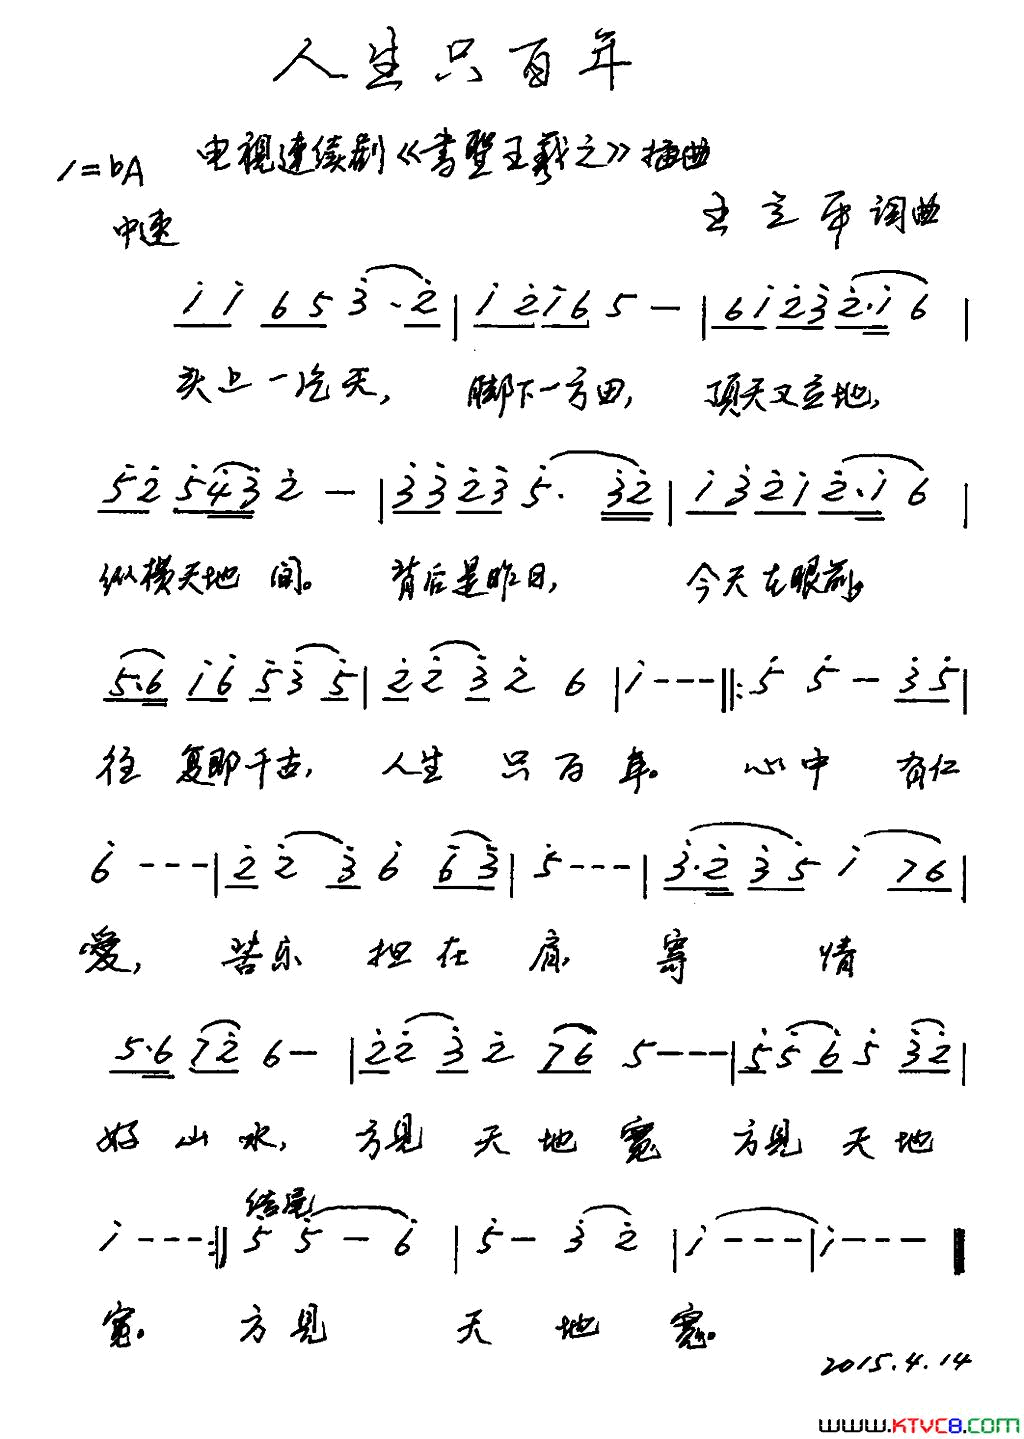 人生只百年
电视连续剧《书圣王羲之》插曲
1=bA
中速
王立平词曲
i i 6 5 3 · 2 | i 2 i 6 5 — | 6 i 2 3 2 · i 6 |
头上一片天, 脚下一方田, 顶天又立地,
5 2 5 4 3 2 — | 3 3 2 3 5 · 3 2 | i 3 2 i 2 · i 6 |
纵横天地间。 背后是昨日, 今天在眼前。
5 · 6 i 6 5 3 5 | 2 2 3 2 6 | i - - - ‖: 5 5 — 3 5 |
往复即千古, 人生只百年。 心中有仁
6 - - - | 2 2 3 6 6 3 | 5 - - - | 3 · 2 3 5 i 7 6 |
爱, 苦乐担在肩, 寄情
5 · 6 7 2 6 — | 2 2 3 2 7 6 5 - - - | 5 5 6 5 3 2 |
好山水, 方见天地宽 方见天地
结尾
i - - - :‖ 5 5 — 6 | 5 — 3 2 | i - - - | i - - - ‖
宽。 方见天地宽。
2015.4.14
WWW.KTVC8.COM